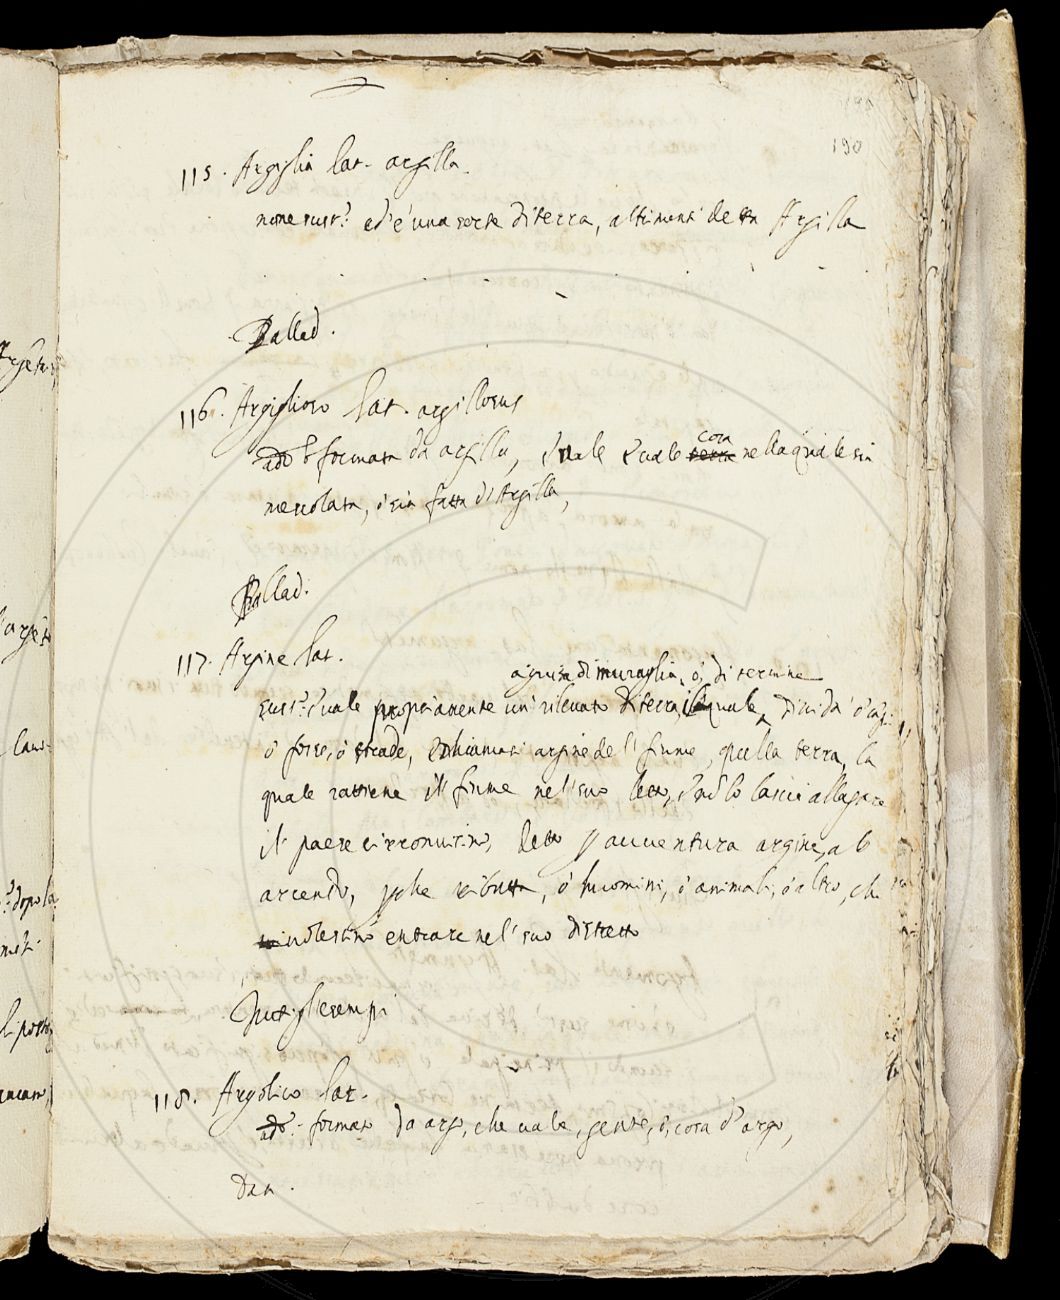 190
115. Argiglia lat. argilla.
nome sust.º ed è una sorte di terra, altrimenti detta Argilla
Pallad.
116. Argiglioso lat. argillosus
add.º formata da argilla, e vale cosa nella quale sia
mescolata, ò sia fatta di Argilla,
Pallad.
117. Argine lat.
à guisa di muraglia, ò di termine
sust.º e vale propriamente un rilevato di terra, il quale divida ò
ò fosse, ò strade, e chiamasi argine del fiume, quella terra, la
quale rattiene il fiume nel suo letto, e nõ lo lascia allagare
il paese circonvicino, detto p avventura argine, ab
arcendo, pche ributta, ò huomini, ò animali, ò altro, che
volessino entrare nel suo distretto
Tutti gl'esempi
118. Argolico lat.
add.º formato da argo, che vale, gente, ò, cosa d'argo,
Dan.